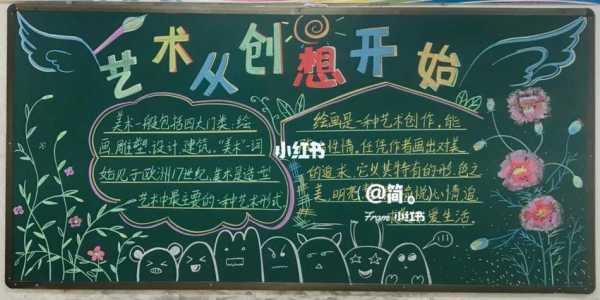 艺术从创想开始
美术一般包括四大门类:绘
画,雕塑,设计,建筑。"美术"一词
始见于欧洲17世纪,美术是造型
艺术中最主要的一种艺术形式
绘画是一种艺术创作,能
怡情,任凭作者画出对美
的追求,它以其特有的形,色之
美,明亮
心情追
爱生活。
小红书
@简。
From 小红书